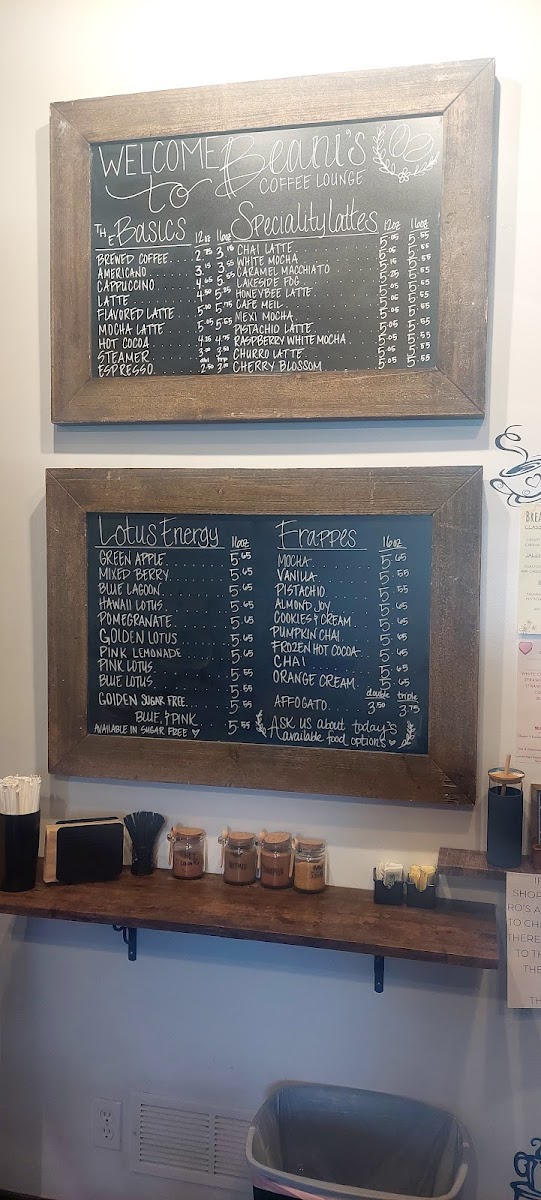 WELCOME to Beani's
COFFEE LOUNGE
THE BASICS 12oz 16oz
BREWED COFFEE 2.75 3.15
AMERICANO 3.15 3.55
CAPPUCCINO 4.65 5
LATTE 4.50 5.25
FLAVORED LATTE 5.00 5.75
MOCHA LATTE 5.05 5.55
HOT COCOA 4.25 4.75
STEAMER 3.00 3.50
ESPRESSO 2.50 3.00
Speciality lattes 12oz 16oz
CHAI LATTE 5.05 5.55
WHITE MOCHA 5.05 5.55
CARAMEL MACCHIATO 5.15 5.55
LAKESIDE FOG 5.25 5.55
HONEYBEE LATTE 5.05 5.55
CAFE MEIL 5.05 5.55
MEXI MOCHA 5.05 5.55
PISTACHIO LATTE 5.05 5.55
RASPBERRY WHITE MOCHA 5.05 5.55
CHURRO LATTE 5.05 5.55
CHERRY BLOSSOM 5.05 5.55
Lotus Energy 16oz
GREEN APPLE 5.65
MIXED BERRY 5.65
BLUE LAGOON 5.65
HAWAII LOTUS 5.65
POMEGRANATE 5.65
GOLDEN LOTUS 5.65
PINK LEMONADE 5.65
PINK LOTUS 5.55
BLUE LOTUS 5.55
GOLDEN SUGAR FREE 5.55
BLUE, & PINK
AVAILABLE IN SUGAR FREE 5.55
Frappes 16oz
MOCHA 5.65
VANILLA 5.55
PISTACHIO 5.55
ALMOND JOY 5.65
COOKIES & CREAM 5.65
PUMPKIN CHAI 5.65
FROZEN HOT COCOA 5.65
CHAI 5.55
ORANGE CREAM 5.65
double triple
AFFOGATO 3.50 3.75
Ask us about today's
available food options